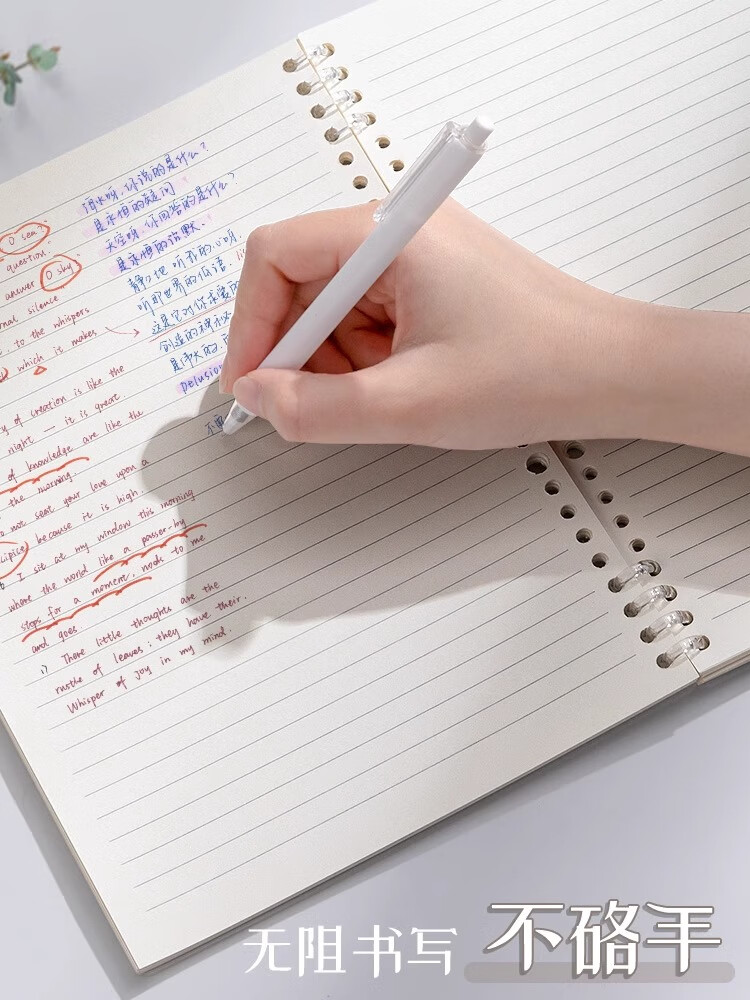 O sea?
question.
answer O sky
nal silence
to the whispers
which is makes
y of creation is like the
night — it is great.
of knowledge are like the
the morning.
not seat your love upon a
cipice because it is high.
I sit at my window this morning
where the world like a passer-by
stops for a moment, nods to me
and goes.
There little thoughts are the
rustle of leaves; they have their.
Whisper of joy in my mind.
海水呀,你说的是什么?
是永恒的疑问
天空呀,你回答的是什么?
是永恒的沉默.
静静地听我的心呀.
听那世界的低语.
这是它对你求爱的
创造的神秘
是伟大的.
Delusion
不要
无阻书写 不硌手